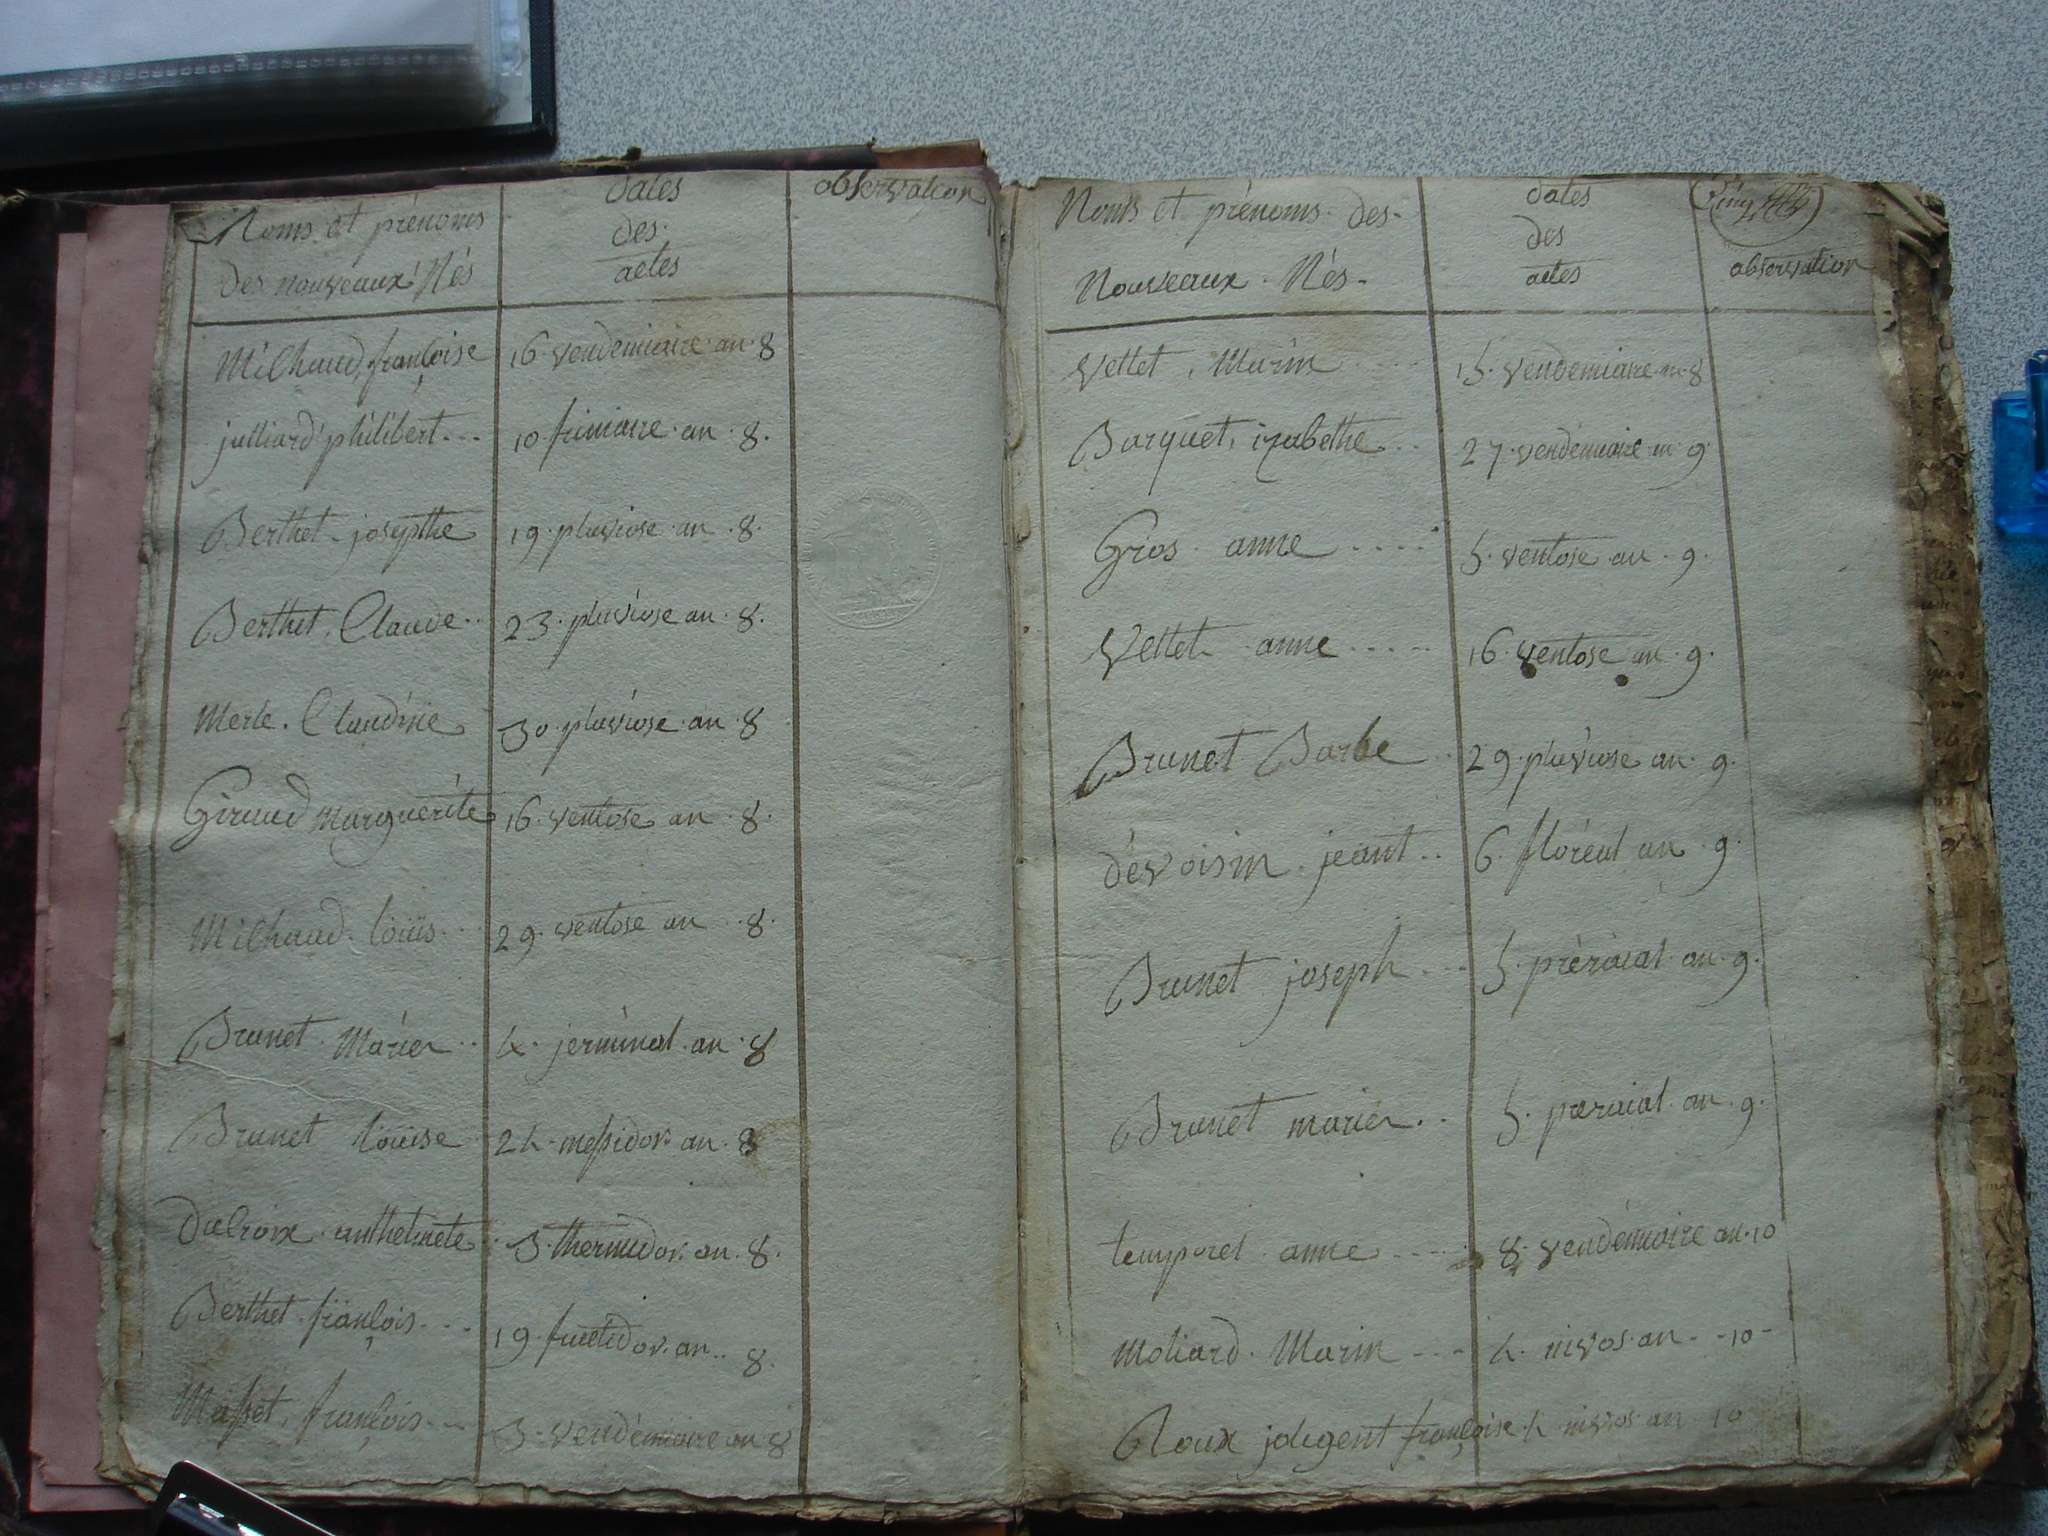 Noms et prénoms
des nouveaux Nés
dates
des
actes
observation
Milhaud, françoise 16 vendemiaire an 8
julliard philibert... 10 frimaire an 8.
Berthet josepthe 19 pluviose an 8.
Berthet, Claude.. 23 pluviose an 8.
Merle. Claudine 30 pluviose an 8
Giraud marguerite 16 ventose an 8.
Milhaud louis... 29 ventose an 8.
Brunet Marie .. 4. jerminal an 8
Brunet louise 24 messidor. an 8
anthelmete 3. thermidor. an. 8.
Berthet françois... 19 fructidor. an.. 8.
Masset, françois... 3. vendémiaire an 8
Noms et prénoms des
Nouveaux Nés
dates
des
actes
observation
Vettet, Marin .... 15. vendemiaire an 8
Barquet, izabethe .. 27 vendémiaire an 9
Gros anne ..... 5. ventose an 9.
Vettet anne ..... 16 ventose an 9.
Brunet Barbe .. 29 pluviose an 9.
dévoisin jeant.. 6 floréal an 9.
Brunet joseph ... 5. préraial an 9.
Brunet marie .. 5. preraial an 9.
temporel anne .... 8. vendémiaire an 10
Moliard. Marin ... 4. nivos an - 10 -
Roux françoise 4 nivos an 10